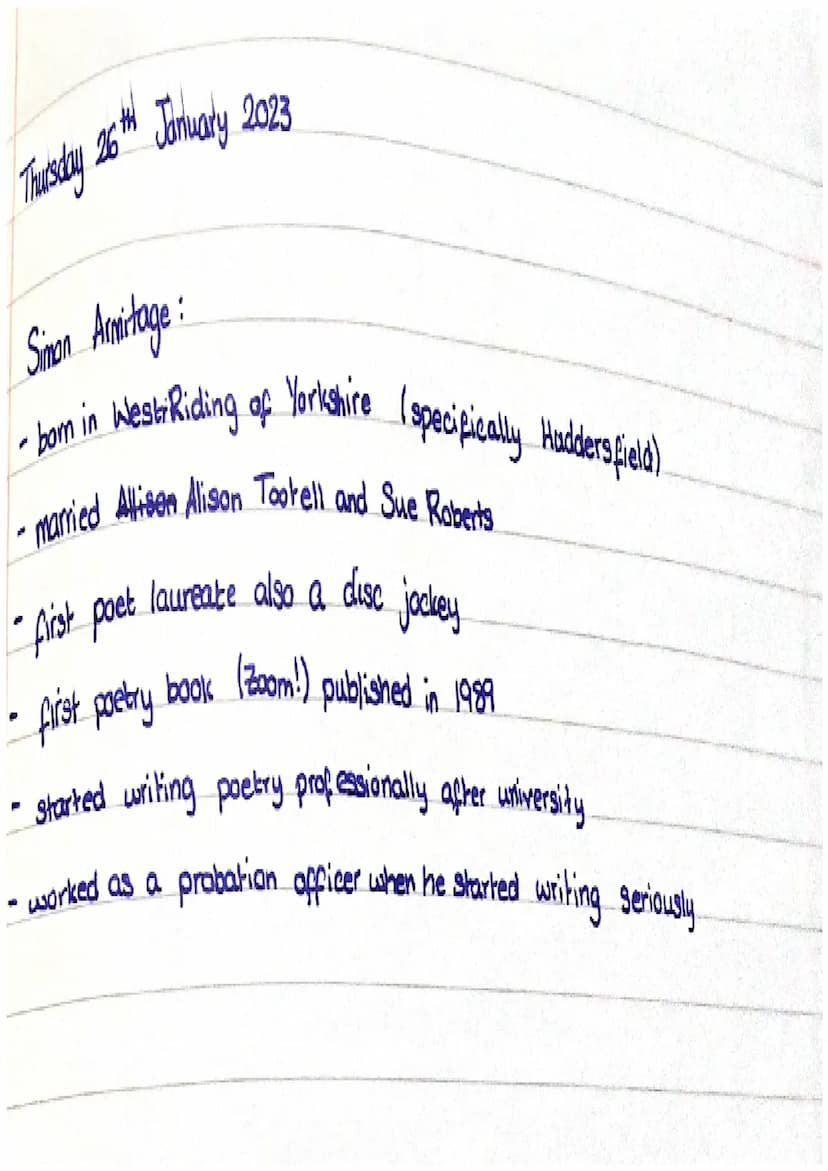 Thursday 26th January 2023
Simon Armitage:
- born in West Riding of Yorkshire (specifically Huddersfield)
- married Allison Alison Tootell and Sue Roberts
- first poet laureate also a disc jockey
- first poetry book (Zoom!) published in 1989
- started writing poetry professionally after university
- worked as a probation officer when he started writing seriously